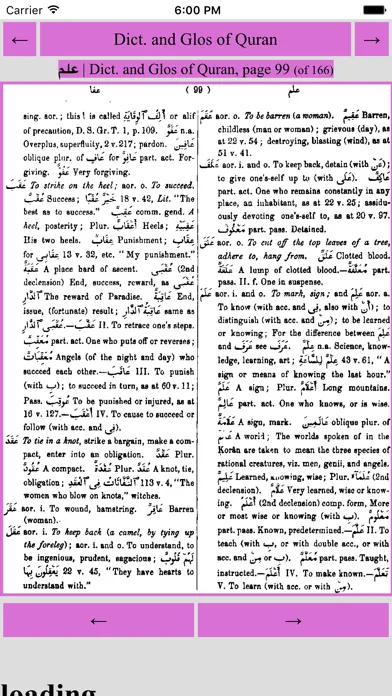 Carrier 6:00 PM
← Dict. and Glos of Quran →
علم | Dict. and Glos of Quran, page 99 (of 166)
عفا ( 99 ) علم
sing. aor.; this ا is called أَلِفُ ٱلْوِقَايَةِ or alif
of precaution, D. S. Gr. T. 1, p. 109. عَفْوٌ n.a.
Overplus, superfluity, 2 v. 217; pardon. عَافِينَ
oblique plur. of عَافٍ for عَافِيٌ part. act. For-
giving. عَفُوٌّ Very forgiving.
عَقَبَ To strike on the heel; aor. o. To succeed.
عُقْبٌ Success; خَيْرٌ عُقْبًا 18 v. 42, Lit. "The
best as to success." عَقِبٌ comm. gend. A
heel, posterity; Plur. أَعْقَابٌ Heels;
His two heels. عِقَابٌ Punishment; عِقَابِ
for عِقَابِي 13 v. 32, etc. "My punishment."
عَقَبَةٌ A place hard of ascent. عُقْبَى (2nd
declension) End, success, reward, as عُقْبَى
ٱلدَّارِ The reward of Paradise. عَاقِبَةٌ End,
issue, (fortunate) result; عَاقِبَةُ ٱلدَّارِ same as
عُقْبَى ٱلدَّارِ.—عَقَّبَ II. To retrace one's steps.
مُعَقِّبٌ part. act. One who puts off or reverses;
مُعَقِّبَاتٌ Angels (of the night and day) who
succeed each other.—عَاقَبَ III. To punish
(with ب); to succeed in turn, as at 60 v. 11;
Pass. عُوقِبَ To be punished or injured, as at
16 v. 127.—أَعْقَبَ IV. To cause to succeed or
follow (with acc. and فِي).
عَقَدَ To tie in a knot, strike a bargain, make a com-
pact, enter into an obligation. عَقْدٌ Plur.
عُقُودٌ A compact. عُقْدَةٌ Plur. عُقَدٌ A knot, tie,
obligation; ٱلنَّفَّاثَاتُ فِي ٱلْعُقَدِ 113 v. 4, "The
women who blow on knots," witches.
عَقَرَ aor. i. To wound, hamstring. عَاقِرٌ Barren
(woman).
عَقَلَ aor. i. To keep back (a camel, by tying up
the foreleg); aor. i. and o. To understand, to
be ingenious, prudent, sagacious; لَهُمْ قُلُوبٌ
يَعْقِلُونَ بِهَا 22 v. 45, "They have hearts to
understand with."
عَقَمَ aor. o. To be barren (a woman). عَقِيمٌ Barren,
childless (man or woman); grievous (day), as
at 22 v. 54; destroying, blasting (wind), as at
51 v. 41.
عَكَفَ aor. i. and o. To keep back, detain (with عَنْ);
to give one's-self up to (with عَلَى). عَاكِفٌ
part. act. One who remains constantly in any
place, an inhabitant, as at 22 v. 25; assidu-
ously devoting one's-self to, as at 20 v. 97.
مَعْكُوفٌ part. pass. Detained.
عَلَقَ aor. o. To cut off the top leaves of a tree,
adhere to, hang from. عَلَقٌ Clotted blood.
عَلَقَةٌ A lump of clotted blood.—مُعَلَّقَةٌ part.
pass. II. f. One in suspense.
عَلَمَ aor. i. and o. To mark, sign; and عَلِمَ aor. a.
To know (with acc. and فِي, also with أَنَّ); to
distinguish (with acc. and مِنْ); to be learned
or knowing; For the difference between عَلِمَ
and عَرَفَ see عَرَفَ. عِلْمٌ n.a. Science, know-
ledge, learning, art; عِلْمٌ لِلسَّاعَةِ 43 v. 61, "A
sign or means of knowing the last hour."
عَلَمٌ A sign; Plur. أَعْلَامٌ Long mountains.
عَالِمٌ part. act. One who knows, or is wise.
عَلَامَةٌ A sign, mark. عَالَمِينَ oblique plur. of
عَالَمٌ A world; The worlds spoken of in the
Korân are taken to mean the three species of
rational creatures, viz. men, genii, and angels.
عَلِيمٌ Learned, knowing, wise; Plur. عُلَمَاءُ (2nd
declension). عَلَّامٌ Very learned, wise or know-
ing. أَعْلَمُ (2nd declension) comp. form, More
or most wise or knowing (with ب). مَعْلُومٌ
part. pass. Known, predetermined.—عَلَّمَ II. To
teach (with ب, or with double acc., or with
acc. and مِنْ or ب). مُعَلَّمٌ part. pass. Taught,
instructed.—أَعْلَمَ IV. To make known.—تَعَلَّمَ
V. To learn (with acc. or with مِنْ).
← →
loading